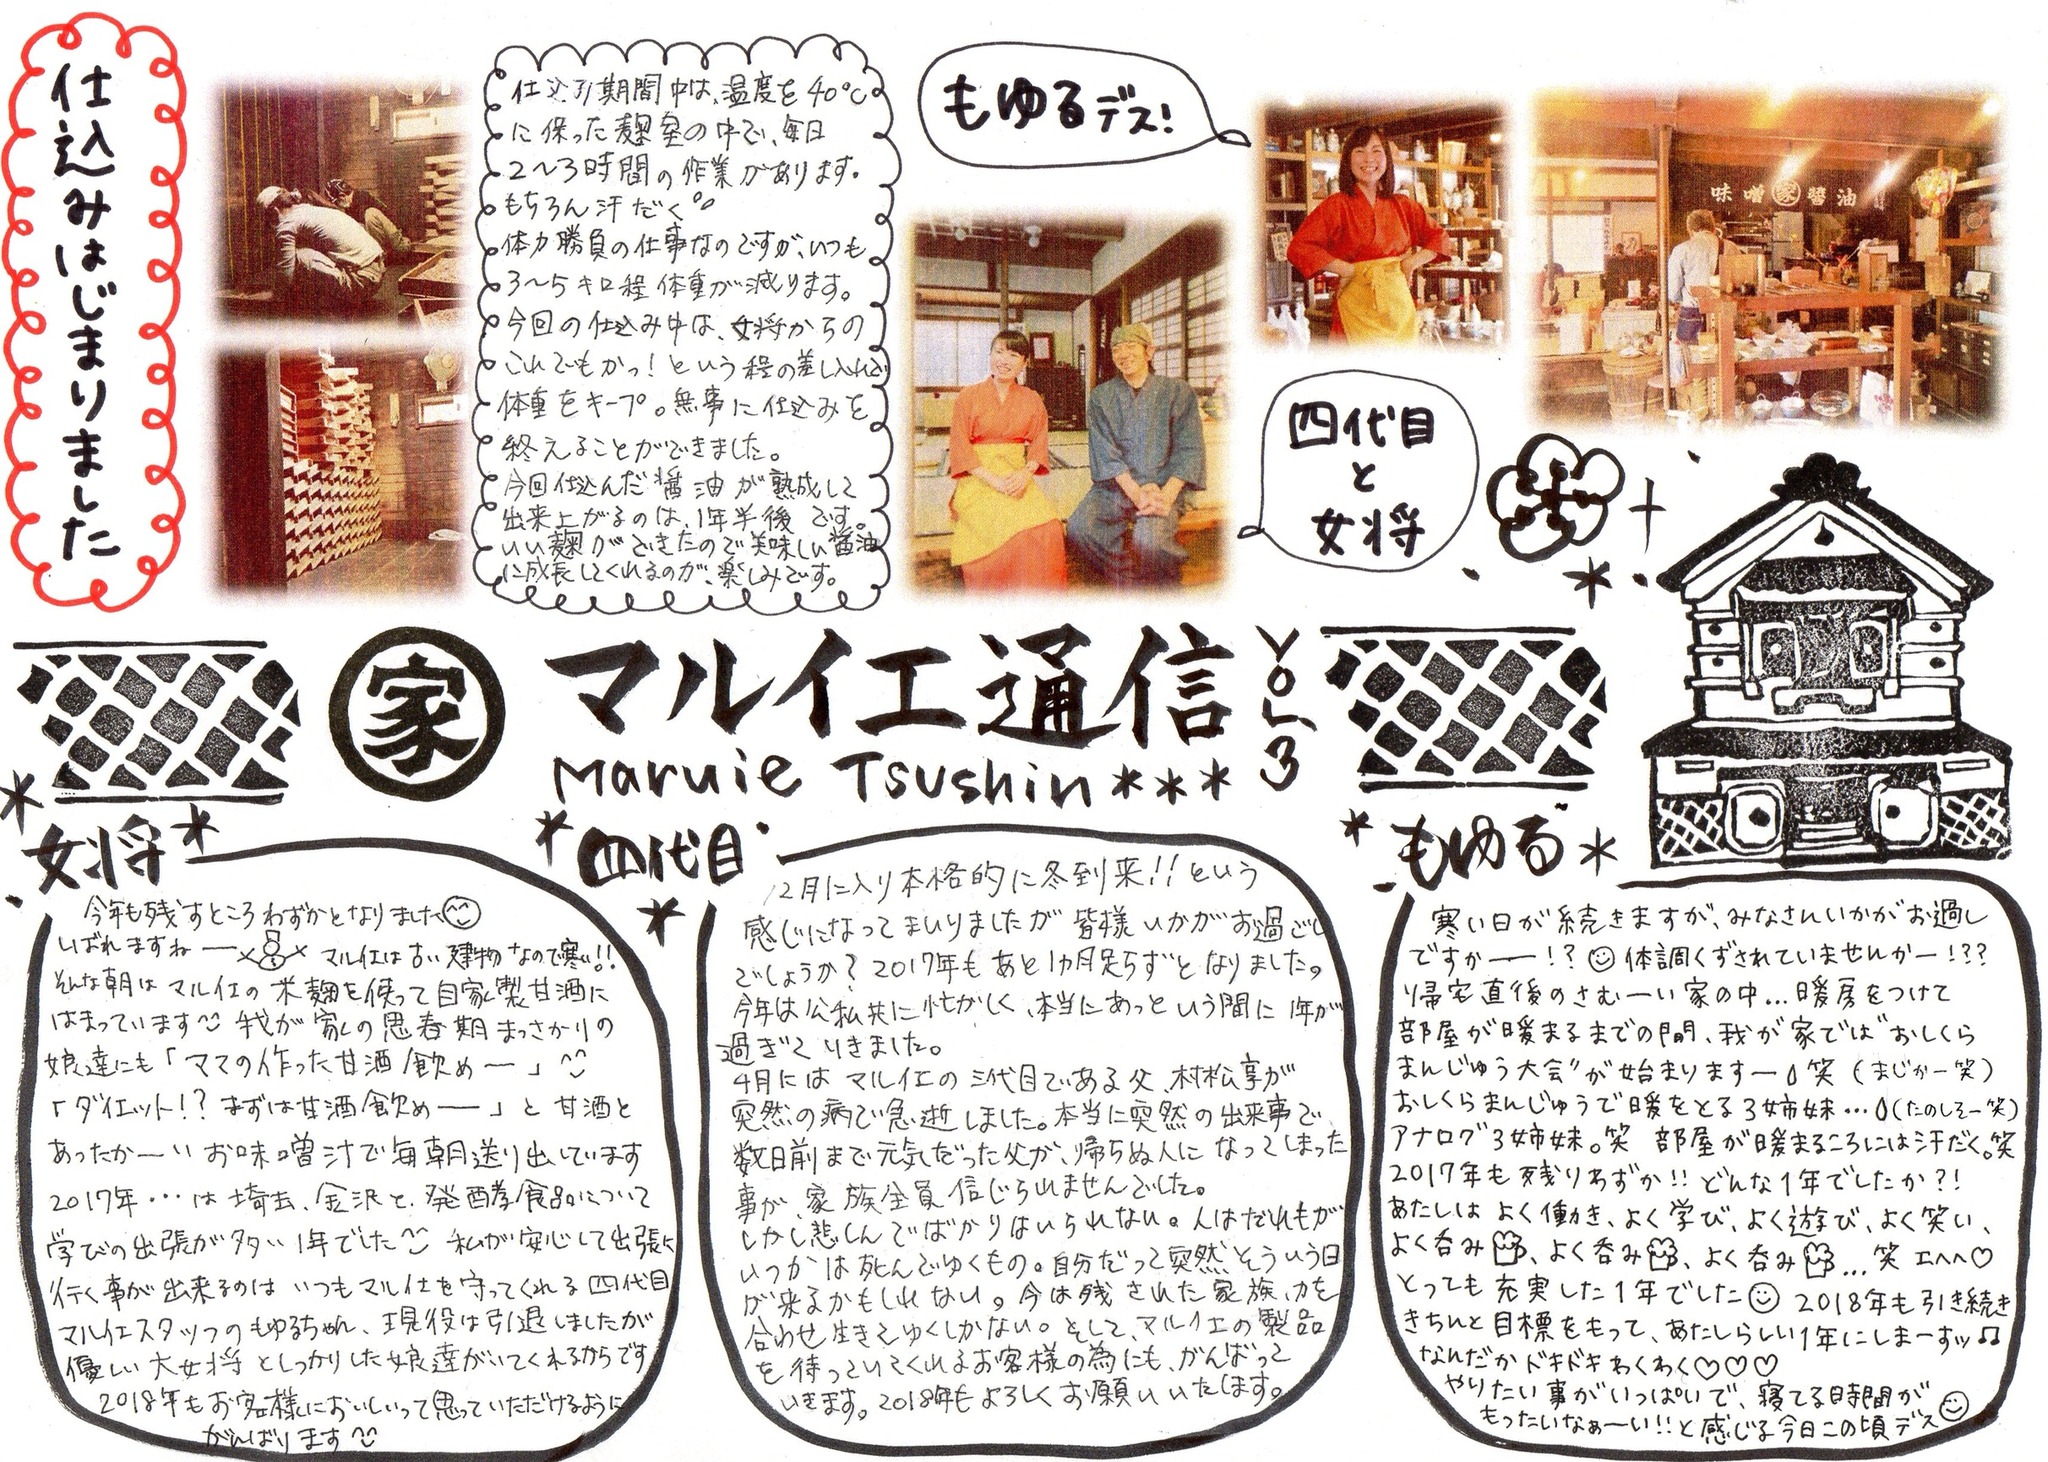 仕込みはじまりました
仕込み期間中は、温度を40℃
に保った麹室の中で、毎日
2〜3時間の作業があります。
もちろん汗だく
体力勝負の仕事なのですが、いつも
3〜5キロ程体重が減ります。
今回の仕込み中は、女将からの
これでもかっ!という程の差し入れで
体重をキープ。無事に仕込みを
終えることができました。
今回仕込んだ醤油が熟成して
出来上がるのは、1年半後です。
いい麹ができたので美味しい醤油
に成長してくれるのが、楽しみです。
もゆるデス!
味噌 家 醤油
四代目
と
女将
家
マルイエ通信
VOL3
Maruie Tsushin***
女将
今年も残すところわずかとなりました
しばれますねー マルイエは古い建物なので寒い!!
そんな朝はマルイエの米麹を使って自家製甘酒に
はまっています 我が家の思春期まっさかりの
娘達にも「ママの作った甘酒飲めー」
「ダイエット!?まずは甘酒飲めー」と甘酒と
あったかーいお味噌汁で毎朝送り出しています
2017年…は埼玉、金沢と、発酵食品について
学びの出張が多い1年でした 私が安心して出張に
行く事が出来るのはいつもマルイエを守ってくれる四代目
マルイエスタッフのもゆるちゃん、現役は引退しましたが
優しい大女将としっかりした娘達がいてくれるからです
2018年もお客様においしいって思っていただけるように
がんばります
四代目
12月に入り本格的に冬到来!!という
感じになってまいりましたが皆様いかがお過ごし
でしょうか?2017年もあと1カ月足らずとなりました。
今年は公私共に忙がしく、本当にあっという間に1年が
過ぎていきました。
4月にはマルイエの三代目である父、村松享が
突然の病で急逝しました。本当に突然の出来事で
数日前まで元気だった父が、帰らぬ人になってしまった
事が、家族全員信じられませんでした。
しかし悲しんでばかりはいられない。人はだれもが
いつかは死んでゆくもの。自分だって突然そういう日
が来るかもしれない。今は残された家族、力を
合わせ生きてゆくしかない。そして、マルイエの製品
を待っていてくれるお客様の為にも、がんばって
いきます。2018年もよろしくお願いいたします。
もゆる
寒い日が続きますが、みなさんいかがお過し
ですかー!?体調くずされていませんかー!??
帰宅直後のさむーい家の中…暖房をつけて
部屋が暖まるまでの間、我が家では"おしくら
まんじゅう大会"が始まりますー笑(まじかー笑)
おしくらまんじゅうで暖をとる3姉妹…(たのしそー笑)
アナログ3姉妹。笑 部屋が暖まるころには汗だく。笑
2017年も残りわずか!!どんな1年でしたか?!
あたしはよく働き、よく学び、よく遊び、よく笑い、
よく呑み、よく呑み、よく呑み…笑 エヘヘ♡
とっても充実した1年でした 2018年も引き続き
きちんと目標をもって、あたしらしい1年にしまーすッ♫
なんだかドキドキわくわく♡♡♡
やりたい事がいっぱいで、寝てる時間が
もったいなぁーい!!と感じる今日この頃デス